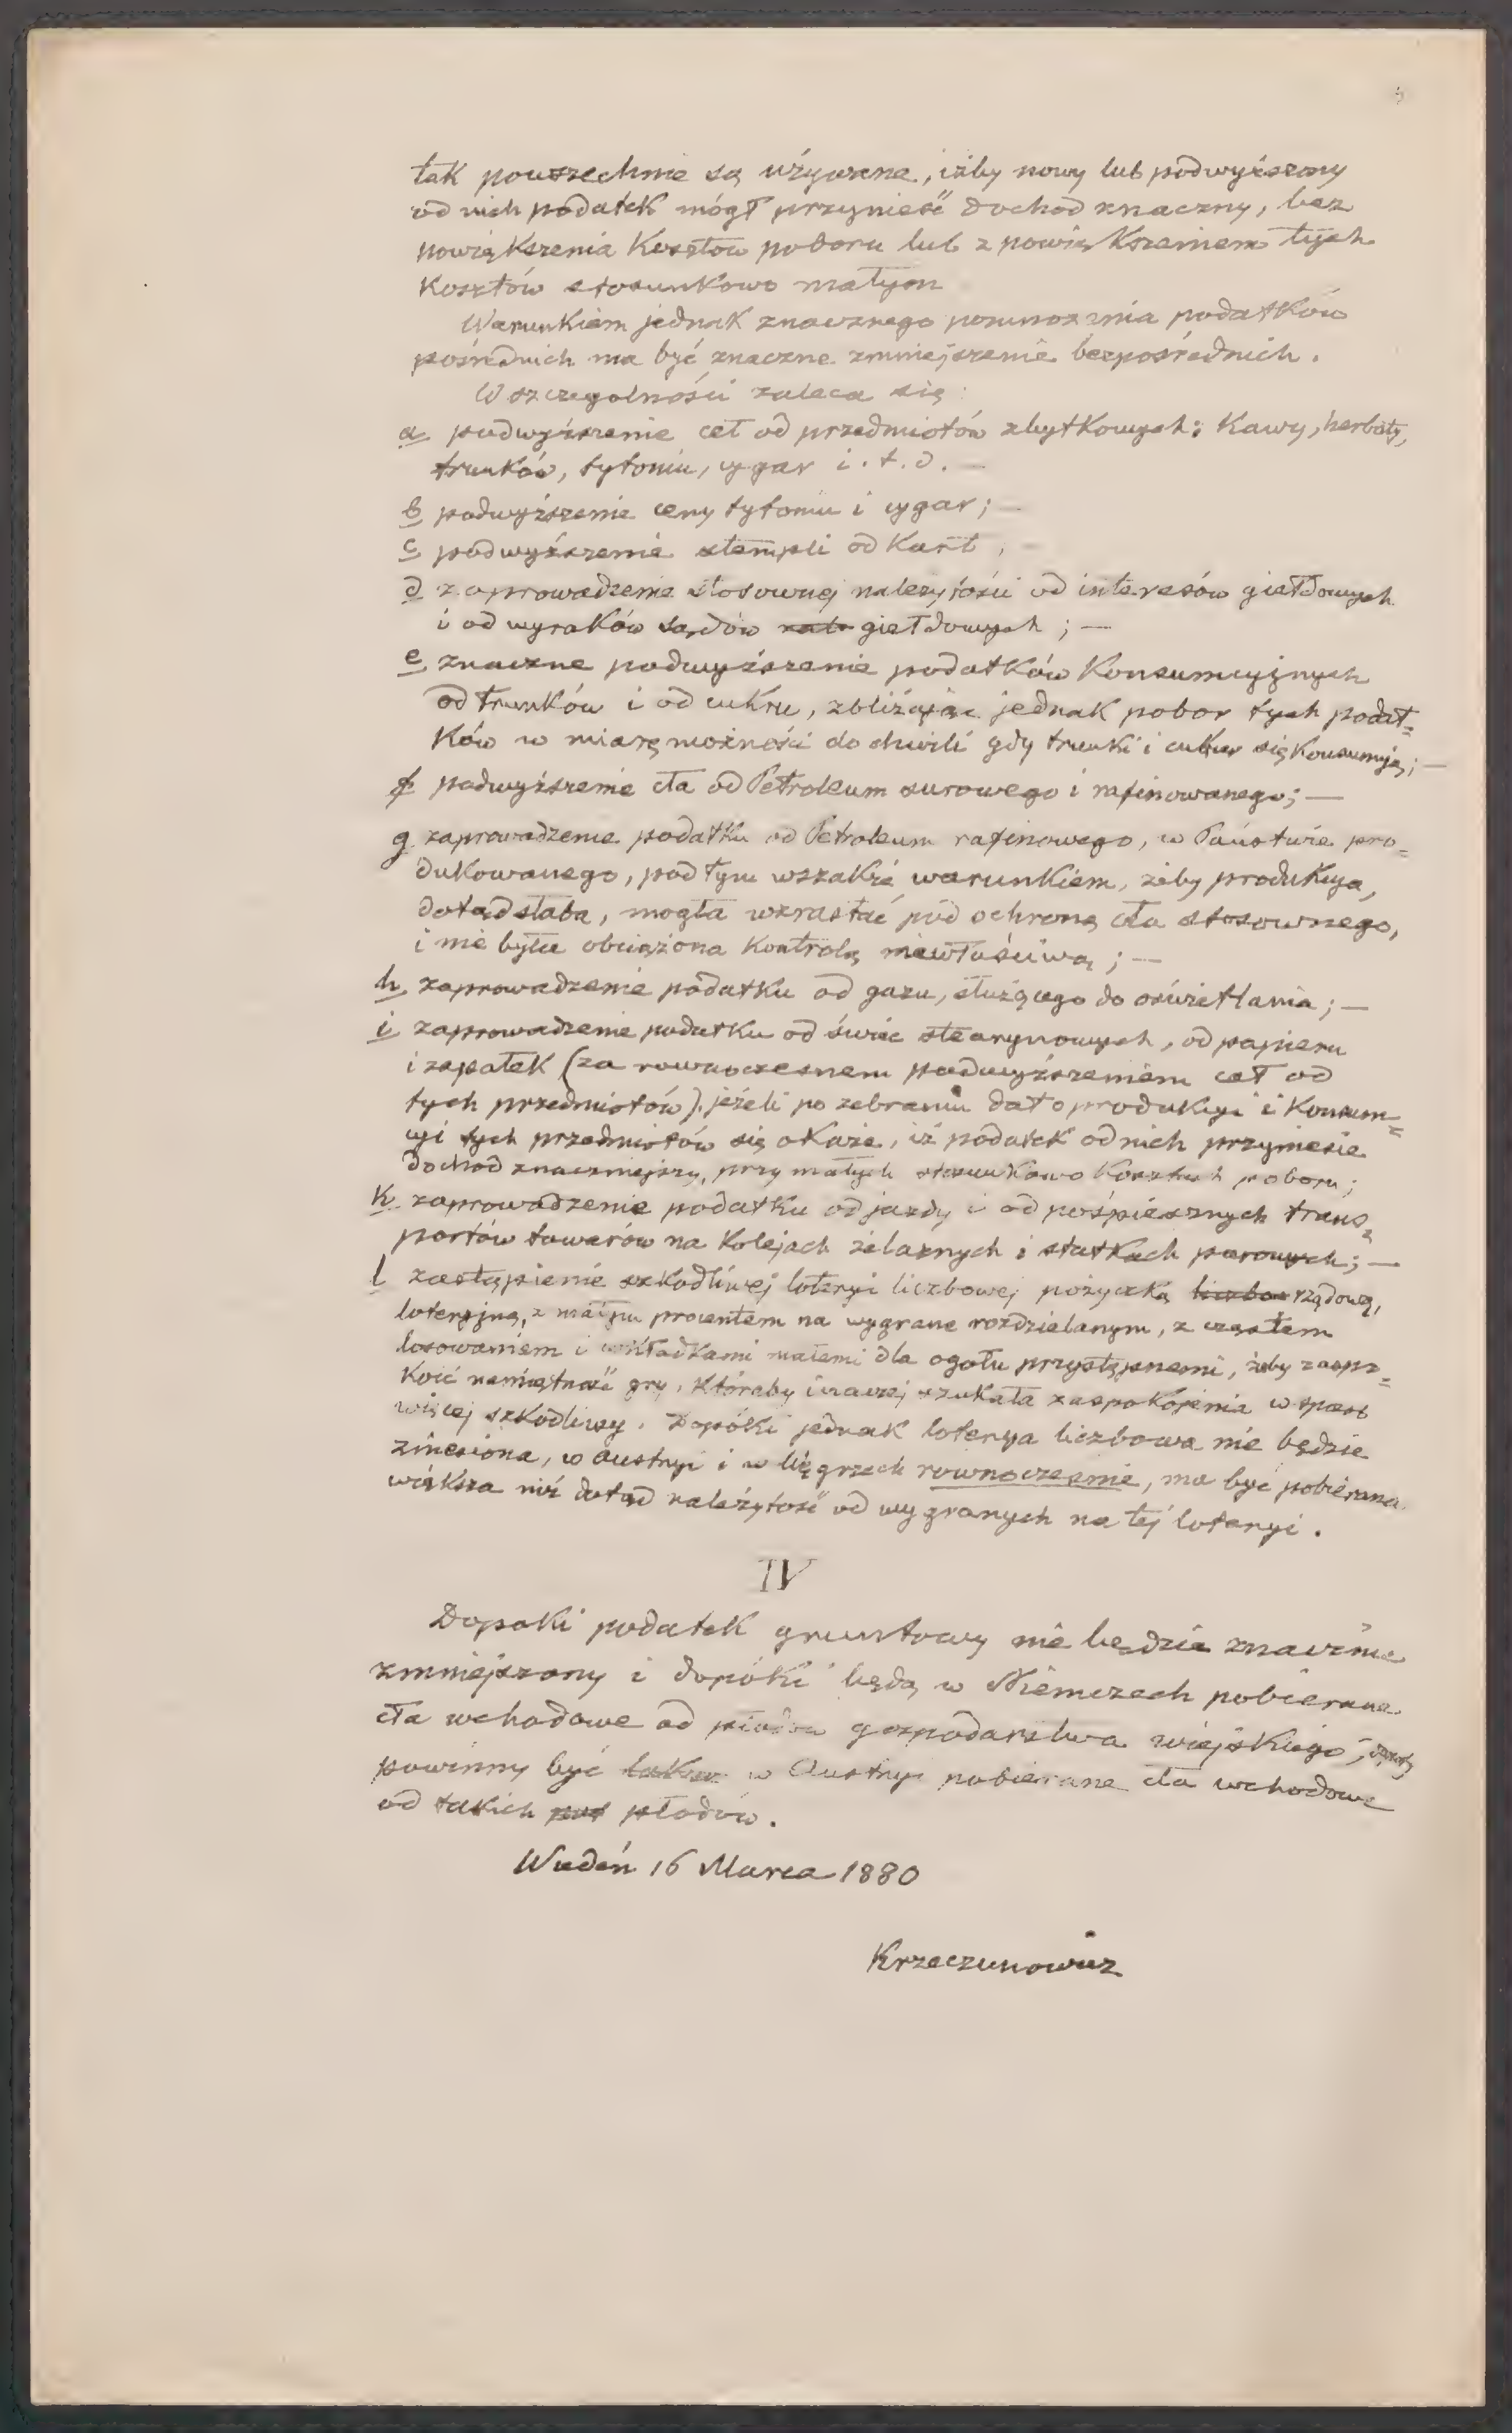 tak powszechnie są używane, iżby nowy lub podwyższony
od nich podatek mógł przynieść dochod znaczny, bez
powiększenia Kosztow poboru lub z powiększeniem tych
Kosztów stosunkowo małym
Warunkiem jednak znacznego pomnożenia podatków
pośrednich ma być znaczne zmniejszenie bezpośrednich.
W szczegolności zaleca się:
a podwyższenie ceł od przedmiotów zbytkowych: Kawy, herbaty,
trunków, tytoniu, cygar i.t.d. —
b podwyższenie ceny tytoniu i cygar; —
c podwyższenie stempli od Kart; —
d zaprowadzenie stosownej należytości od interesów giełdowych
i od wyroków sądów giełdowych; —
e znaczne podwyższenie podatków Konsumcyjnych
od trunków i od cukru, zbliżając jednak pobor tych podat=
Ków w miarę możności do chwili gdy trunki i cukier się Konsumują; —
f podwyższenie cła od Petroleum surowego i rafinowanego; —
g zaprowadzenie podatku od Petroleum rafinowego, w Państwie pro=
dukowanego, pod tym wszakże warunkiem, żeby produkcya,
dotąd słaba, mogła wzrastać pod ochroną cła stosownego,
i nie była obciążona Kontrolą niewłaściwą; —
h zaprowadzenie podatku od gazu, służącego do oświetlania; —
i zaprowadzenie podatku od świec stearynowych, od papieru
i zapałek (za rownoczesnem podwyższeniem ceł od
tych przedmiotów), jeżeli po zebraniu dat o produkcyi i Konsum=
cyi tych przedmiotów się okaże, iż podatek od nich przyniesie
dochod znaczniejszy, przy małych stosunkowo Kosztach poboru;
k zaprowadzenie podatku od jazdy i od pośpiesznych trans=
portów towarów na Kolejach żelaznych i statkach parowych; —
l zastąpienie szkodliwej loteryi liczbowej pożyczką rządową,
loteryjną, z małym procentem na wygrane rozdzielanym, z częstem
losowaniem i wkładkami małemi dla ogołu przystępnemi, żeby zaspo=
Koić namiętność gry, Któraby inaczej szukała zaspokojenia w sposob
więcej szkodliwy. Dopóki jednak loterya liczbowa nie będzie
zniesiona, w Austryi i w Węgrzech rownoczesnie, ma być pobierana
większa niż dotąd należytość od wygranych na tej loteryi.
IV
Dopoki podatek gruntowy nie będzie znacznie
zmniejszony i dopóki będą w Niemczech pobierane
cła wchodowe od płodów gospodarstwa wiejskiego,
powinny być w Austryi pobierane cła wchodowe
od takich płodów.
Wiedeń 16 Marca 1880
Krzeczunowicz